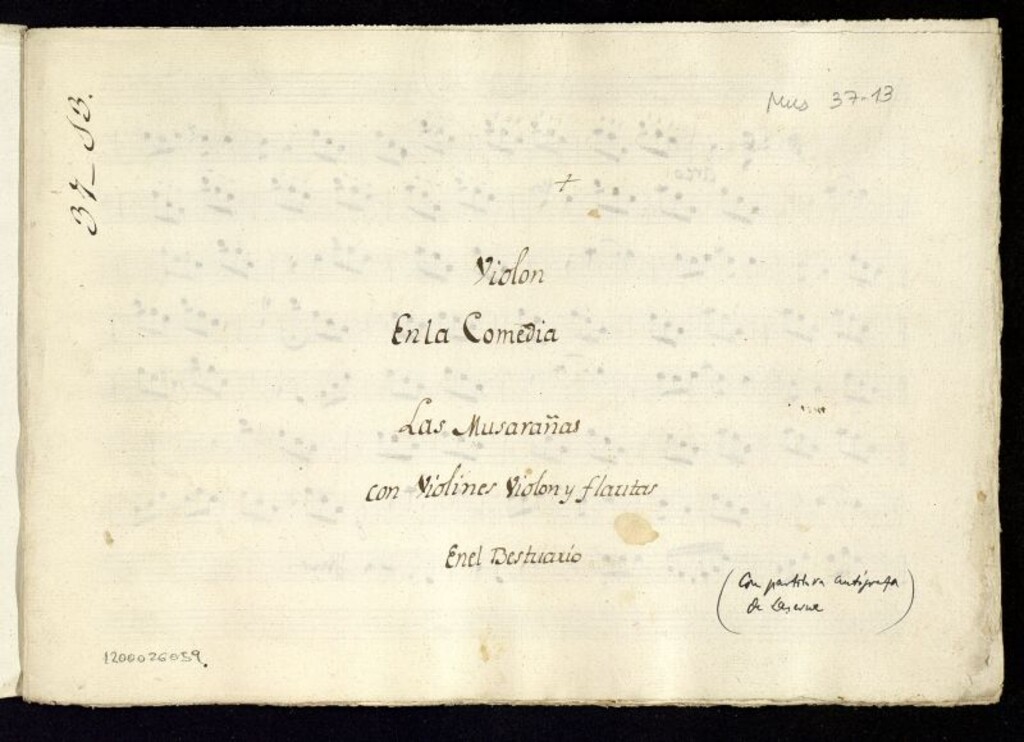 37_13.
Mus 37-13
+
Violon
En la Comedia
Las Musarañas
con Violines Violon y flautas
En el Bestuario
(Con partitura autógrafa
de Laserna)
1200026059.